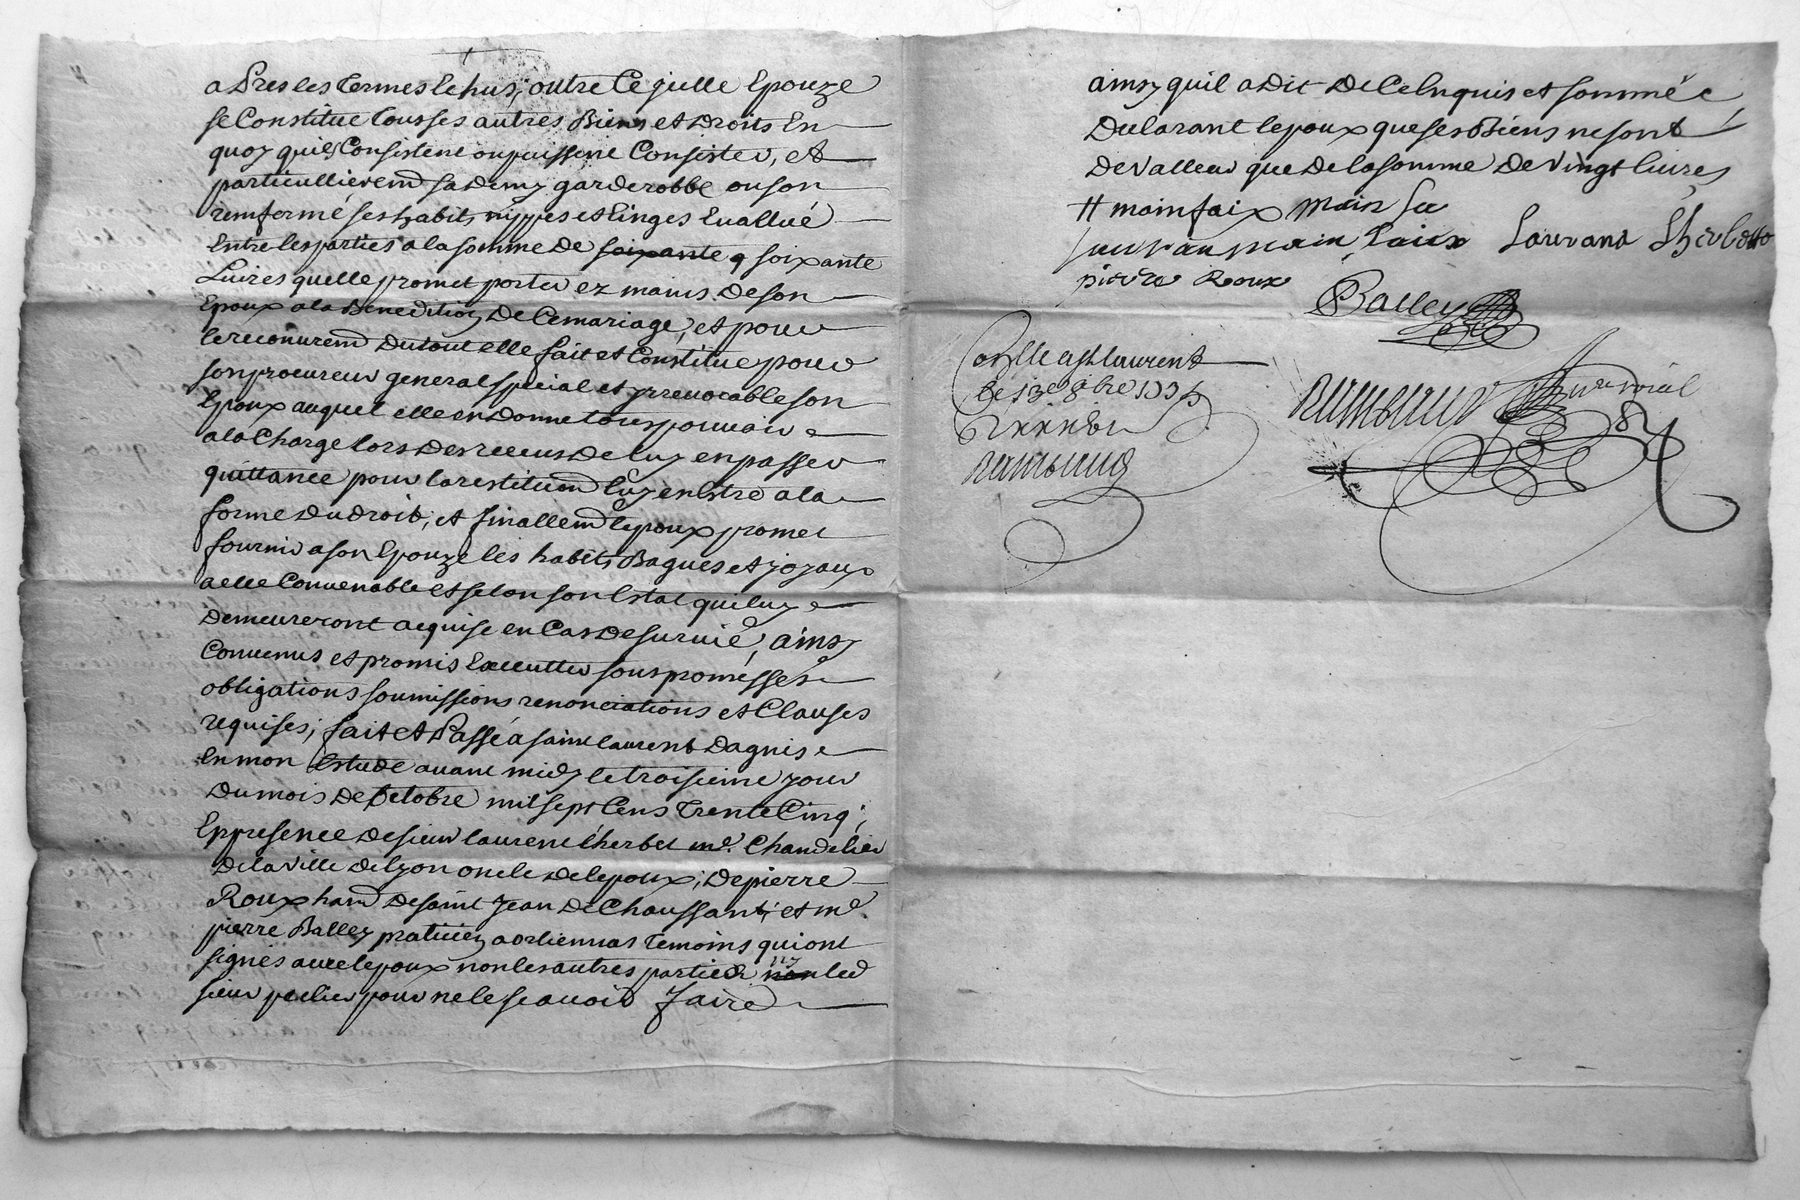 aPres les termes echus, outre Ce qu'elle Epouze
se Constitue Tous ses autres Biens et Droits En
quoy quils Consistent ou puissent Consister, et
particullierem̄ sa Demy garderobbe ou son
remfermé ses habits nippes et Linges Evallué
Entre les parties a la somme De soixante q soixante
Livres quelle promet porter ez mains De son
Epoux a la Benediction De Ce mariage, et pour
le recouvrem̄ Du tout elle fait et Constitue pour
son procureur general special et yrrevocable son
Epoux auquel elle en Donne tous pouvoir
a la Charge lors Des receus De luy en passer
quittance pour la restitution luy en Estre a la
forme Du Droit, et finallem̄ lepoux promet
fournir a son Epouze les habits Bagues et joyaux
a elle Convenable et selon son Estat qui luy
Demeureront acquise en Cas De survie, ainsy
Convenus et promis Executter sous promesses
obligations soumissions renonciations et Clauses
requises; fait et Passé a saint laurent Dagnis
En mon Estude avant midy le troisieme jour
Du mois De octobre mil sept Cens Trente Cinq;
En presence De sieur laurent Lherbet md. Chandelier
De la ville De lyon oncle De lepoux; De pierre
Roux han̄ De saint Jean De Chaussant; et me.
pierre Balley praticien a orliennas Temoins qui ont
signés avec lepoux non les autres parties ny led
sieur pour ne le sçavoir faire
ainsy quil a Dit De Ce Enquis et sommé
Declarant lepoux que ses Biens ne sont
De valleur que De la somme De vingt livres
main faix main
main faix Laurand Lherbette
pierre Roux
Balley
Conlle a st laurent
le 13e 8bre 1735